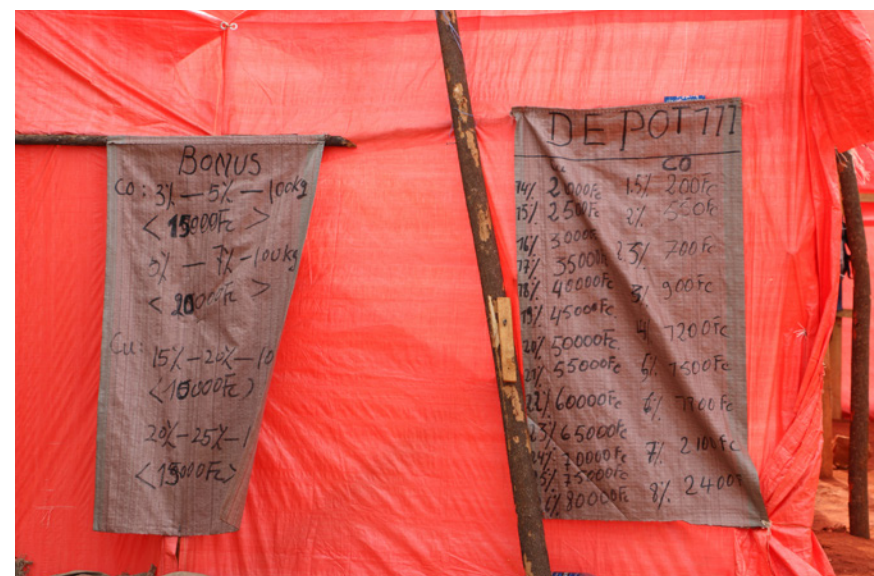 BONUS
Co: 3% — 5% — 100kg
< 15000Fc >
5% — 7% — 100kg
< 20000Fc >
Cu: 15% — 20% — 10
< 10000Fc >
20% — 25% — 1
< 15000Fc >
DEPOT 777
CO
14% 2000Fc 1.5% 200Fc
15% 2500Fc 2% 550Fc
16% 2.5% 700Fc
17% 35000Fc
18% 40000Fc 3% 900Fc
19% 45000Fc
20% 50000Fc 4% 1200Fc
21% 55000Fc 5% 1500Fc
22% 60000Fc 6%
23% 65000Fc
24% 70000Fc 7% 2100Fc
75000Fc
80000Fc 8% 2400F